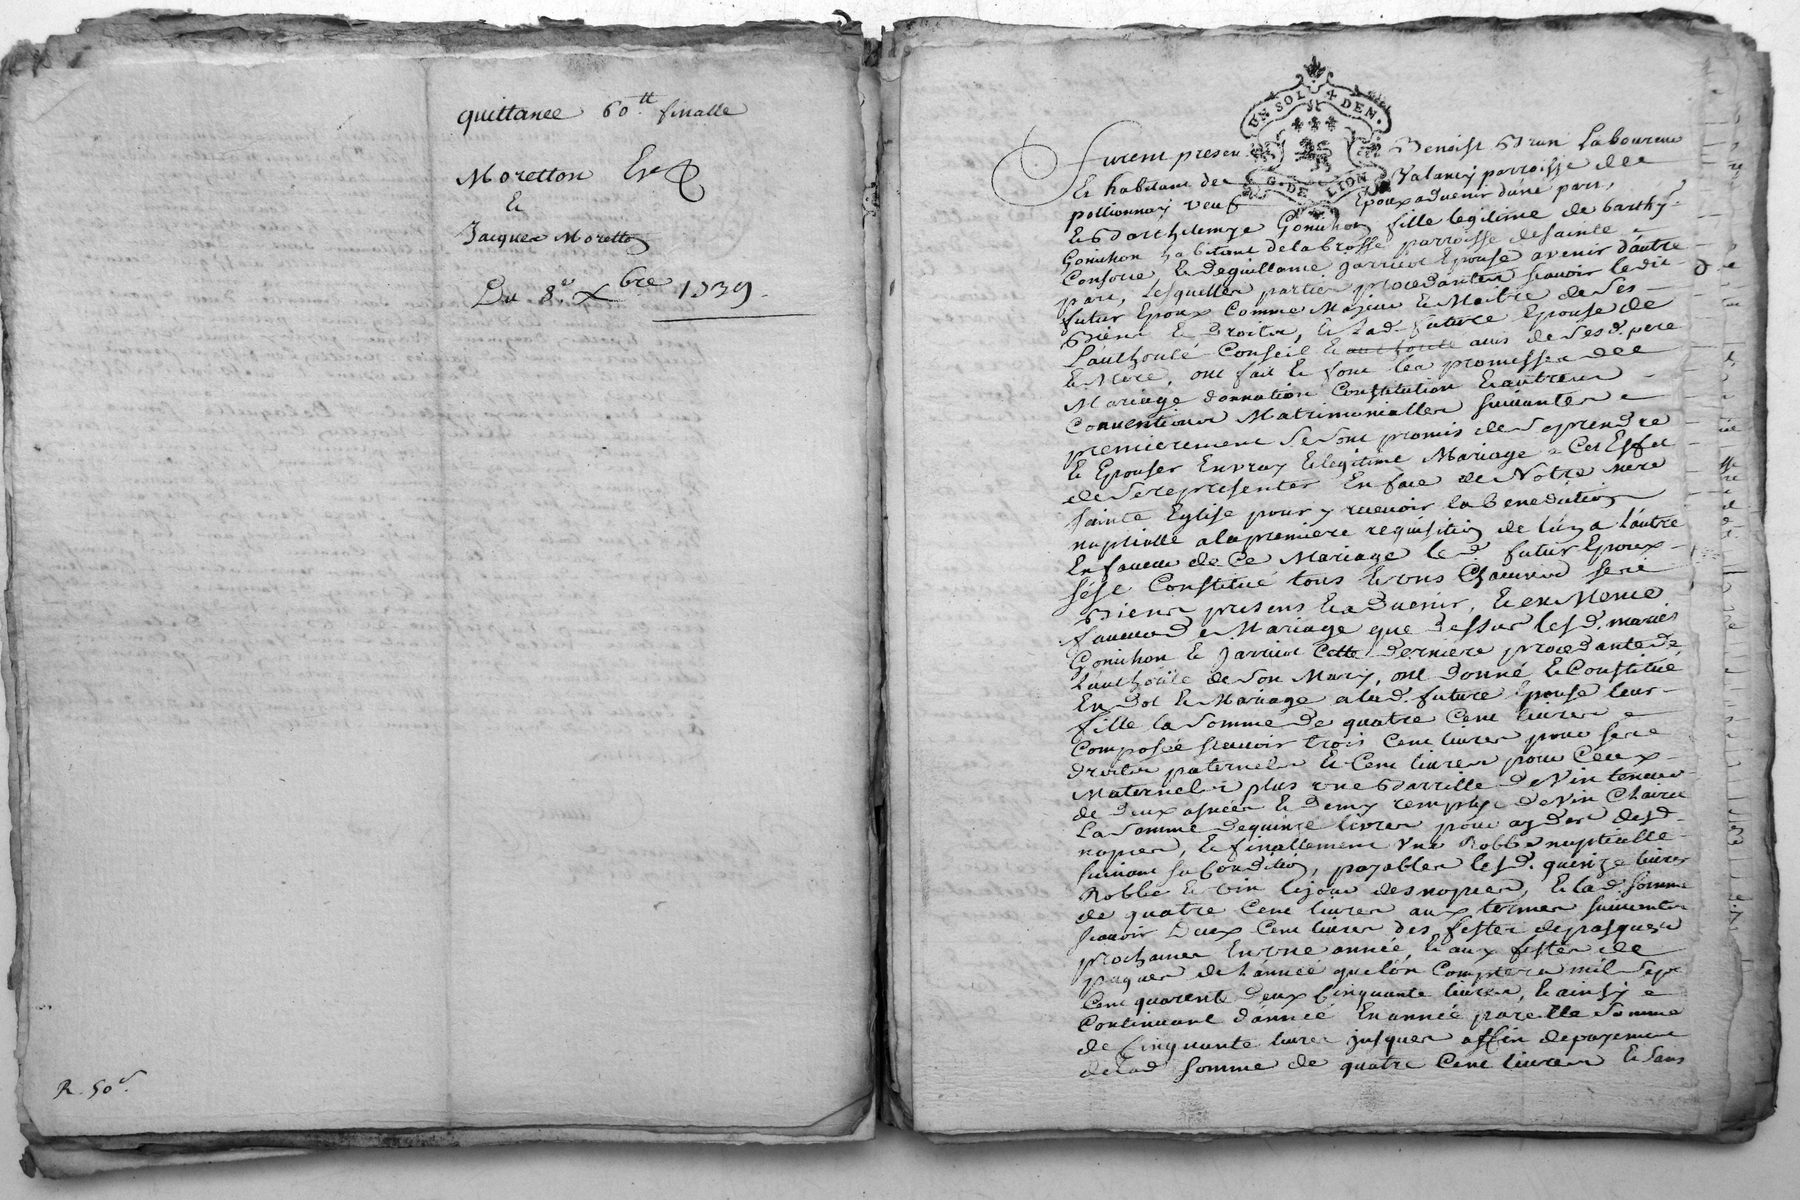 quittance 60.tt finalle
Moretton
Et
Jacques Moretton
Du 8.e Xbre 1739.
R. 50s.
UN SOL DEN.
G. DE LION
furent presen Benoist Brun Laboureur
Et habitant de Valancy parroisse de
pollionnay veuf Epoux advenir d'une part,
Et Barthelemye Gonichon fille legitime de Barthy.
Gonichon habitant de la brosse parroisse de sainte
Consorce Et de guillame Jarricot Epouse avenir d'autre
part, Lesquelles parties procedantes scavoir ledit
futur Epoux comme Majeur Et Maitre de Ses
Biens Et Droits, Et Lad. future Epouse de
L'authorité Conseil Et authorité avis de Sesd. pere
Et Mere, ont fait Et font les promesses de
Mariage donnation Constitution Et autres
Conventions Matrimonialles suivantes
premierement Se sont promis de Se prendre
Et Epouser En vray Et legitime Mariage a Cet Effet
de Se representer En face de Notre mere
sainte Eglise pour y recevoir la Benediction
nuptialle a la premiere requisition de l'un a l'autre
En faveur de Ce Mariage le d. futur Epoux
s'Est Constitué tous Et uns Chacuns ses
Biens presens Et a Duenir, Et en Meme
faveur de Mariage que dessus lesd. mariés
Gonichon Et Jarricot Cette derniere procedante de
L'authorité de Son Mary, ont Donné Et Constitué
En Dot Et Mariage a lad. future Epouse leur
fille la Somme de quatre Cent livres
Composée scavoir trois Cent livres pour ses
droits paternels Et Cent livres pour Ceux
Maternels plus une Barrille de Vin teneur
de deux asnées Et demy remplye de Vin Clairet
La Somme de quinze livres pour ayder des d.
nopces, Et finallement une Robbe nuptialle
suivant sa Condition, payables lesd. quinze livres
Robbe Et vin le jour des nopces, Et la d. somme
de quatre Cent livres aux termes suivantes
scavoir Deux Cent livres des festes de pasques
prochaines En une année, Et aux festes de
paques de L'année que l'on Comptera mil Sept
Cent quarente Deux Cinquante livres, Et ainsi
Continuant d'année En année pareille Somme
de Cinquante livres jusques affin de payement
de lad. Somme de quatre Cent livres Et Sans